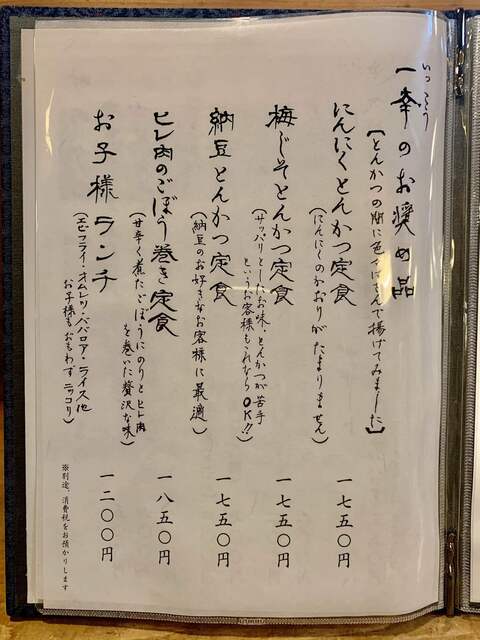 いっこう
一幸のお奨め品
【とんかつの間に色々はさんで揚げてみました】
にんにくとんかつ定食
(にんにくのかおりがたまりません)
一七五〇円
梅じそとんかつ定食
(サッパリとしたお味、とんかつが苦手
というお客様もこれならOK!!)
一七五〇円
納豆とんかつ定食
(納豆のお好きなお客様に最適)
一七五〇円
ヒレ肉のごぼう巻き定食
(甘辛く煮たごぼうにのりとヒレ肉
を巻いた贅沢な味)
一八五〇円
お子様ランチ
(エビフライ・オムレツ・ババロア・ライス他
お子様もおもわずニッコリ)
一二〇〇円
※別途、消費税をお預かりします